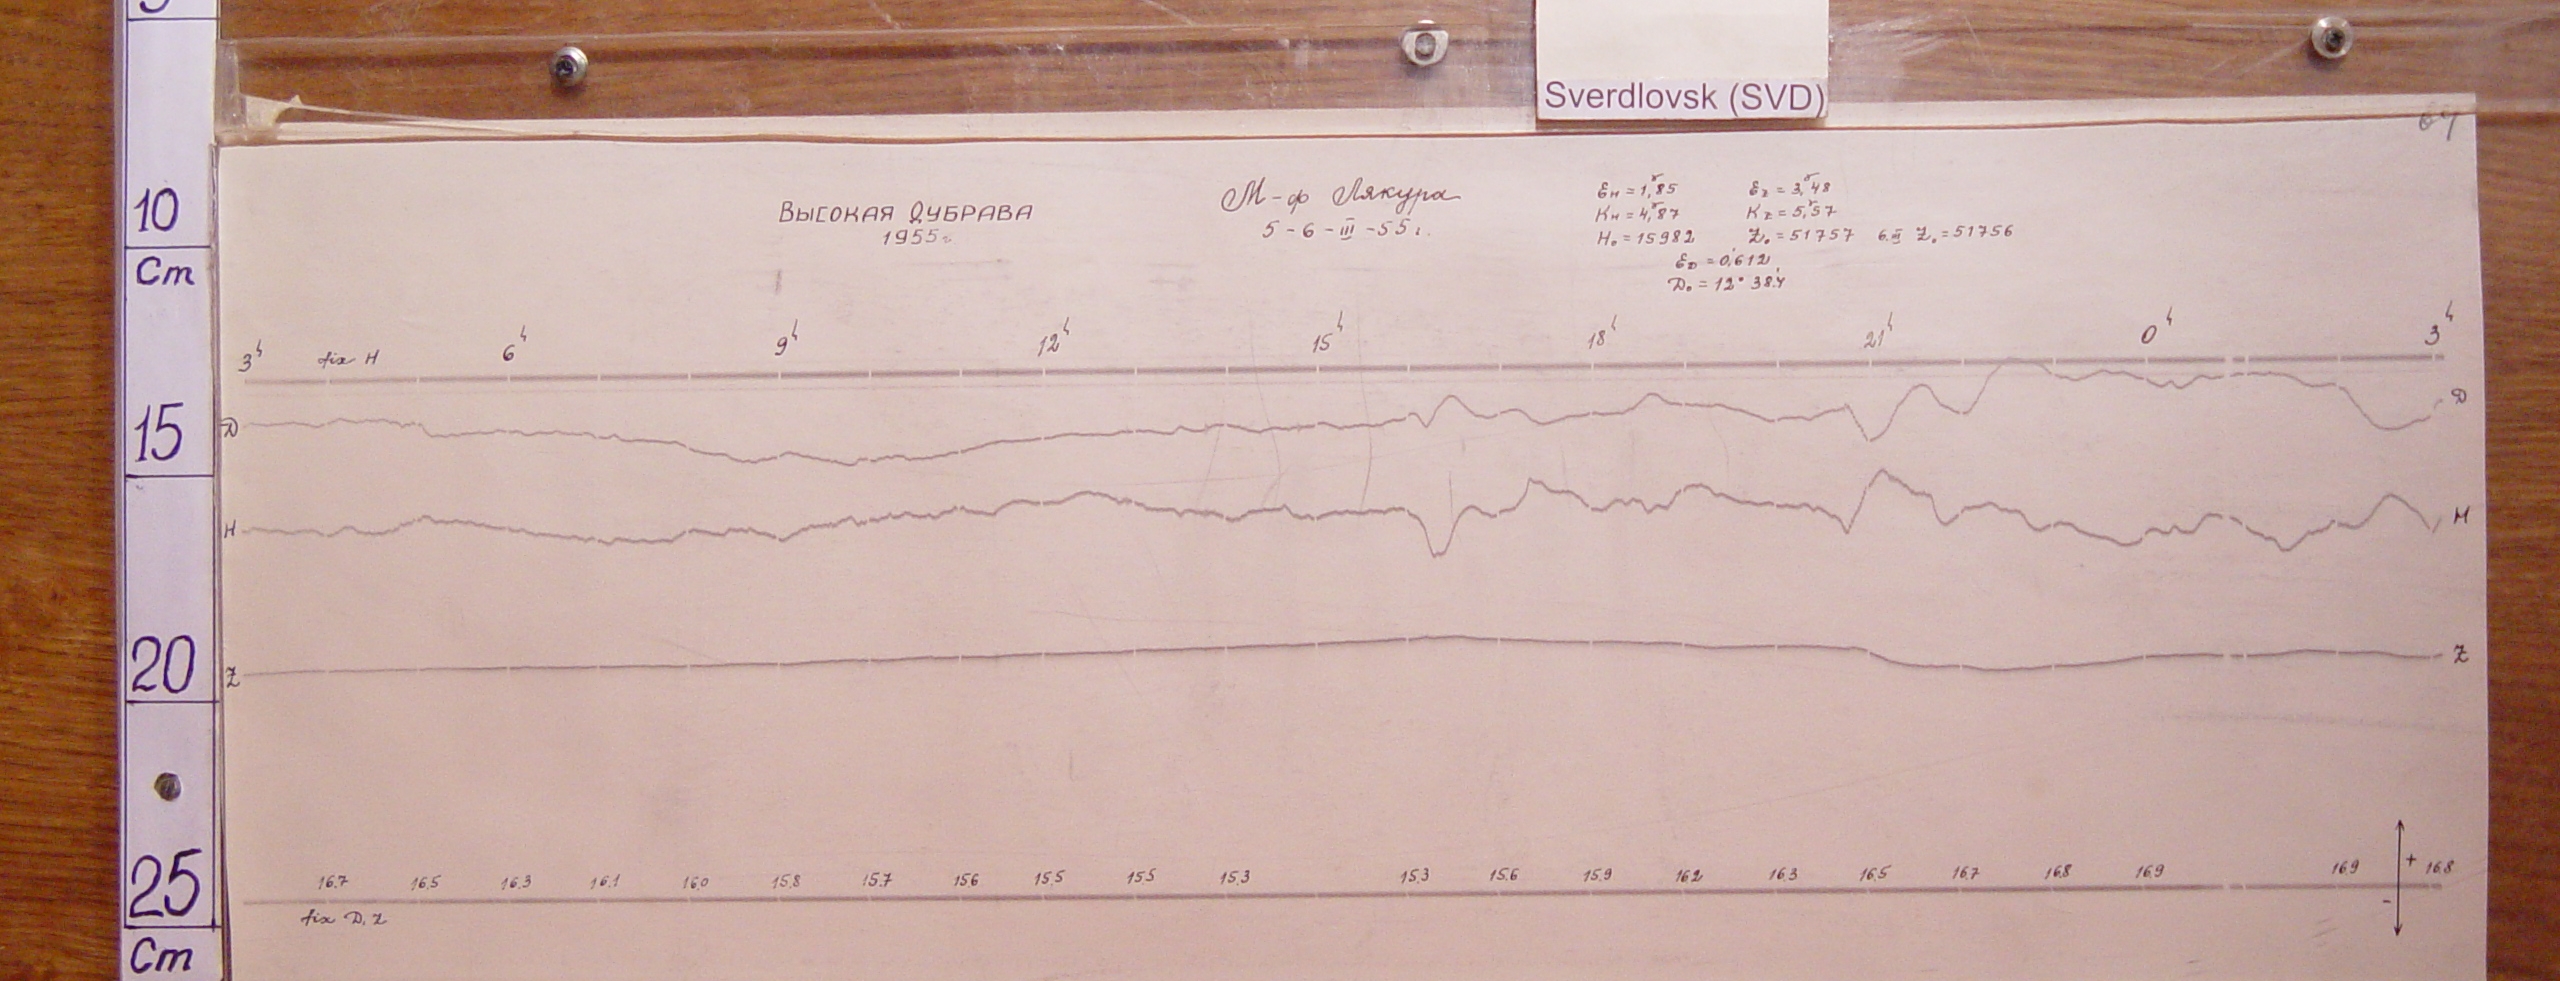 Sverdlovsk (SVD)
64
10
Cm
15
20
25
Cm
Высокая Дубрава
1955г.
М-ф Лякура
5-6-III-55г.
Ен = 1,γ85 Еz = 3,γ48
Кн = 4,γ87 Кz = 5,γ57
H₀ = 15982 Z₀ = 51757 6.III Z₀ = 51756
ЕD = 0,'612
D₀ = 12° 38,'4
3ʰ fix H 6ʰ 9ʰ 12ʰ 15ʰ 18ʰ 21ʰ 0ʰ 3ʰ
D D
H H
Z Z
16.7 16.5 16.3 16.1 16.0 15.8 15.7 15.6 15.5 15.5 15.3 15.3 15.6 15.9 16.2 16.3 16.5 16.7 16.8 16.9 16.9 + 16.8
-
fix D, Z